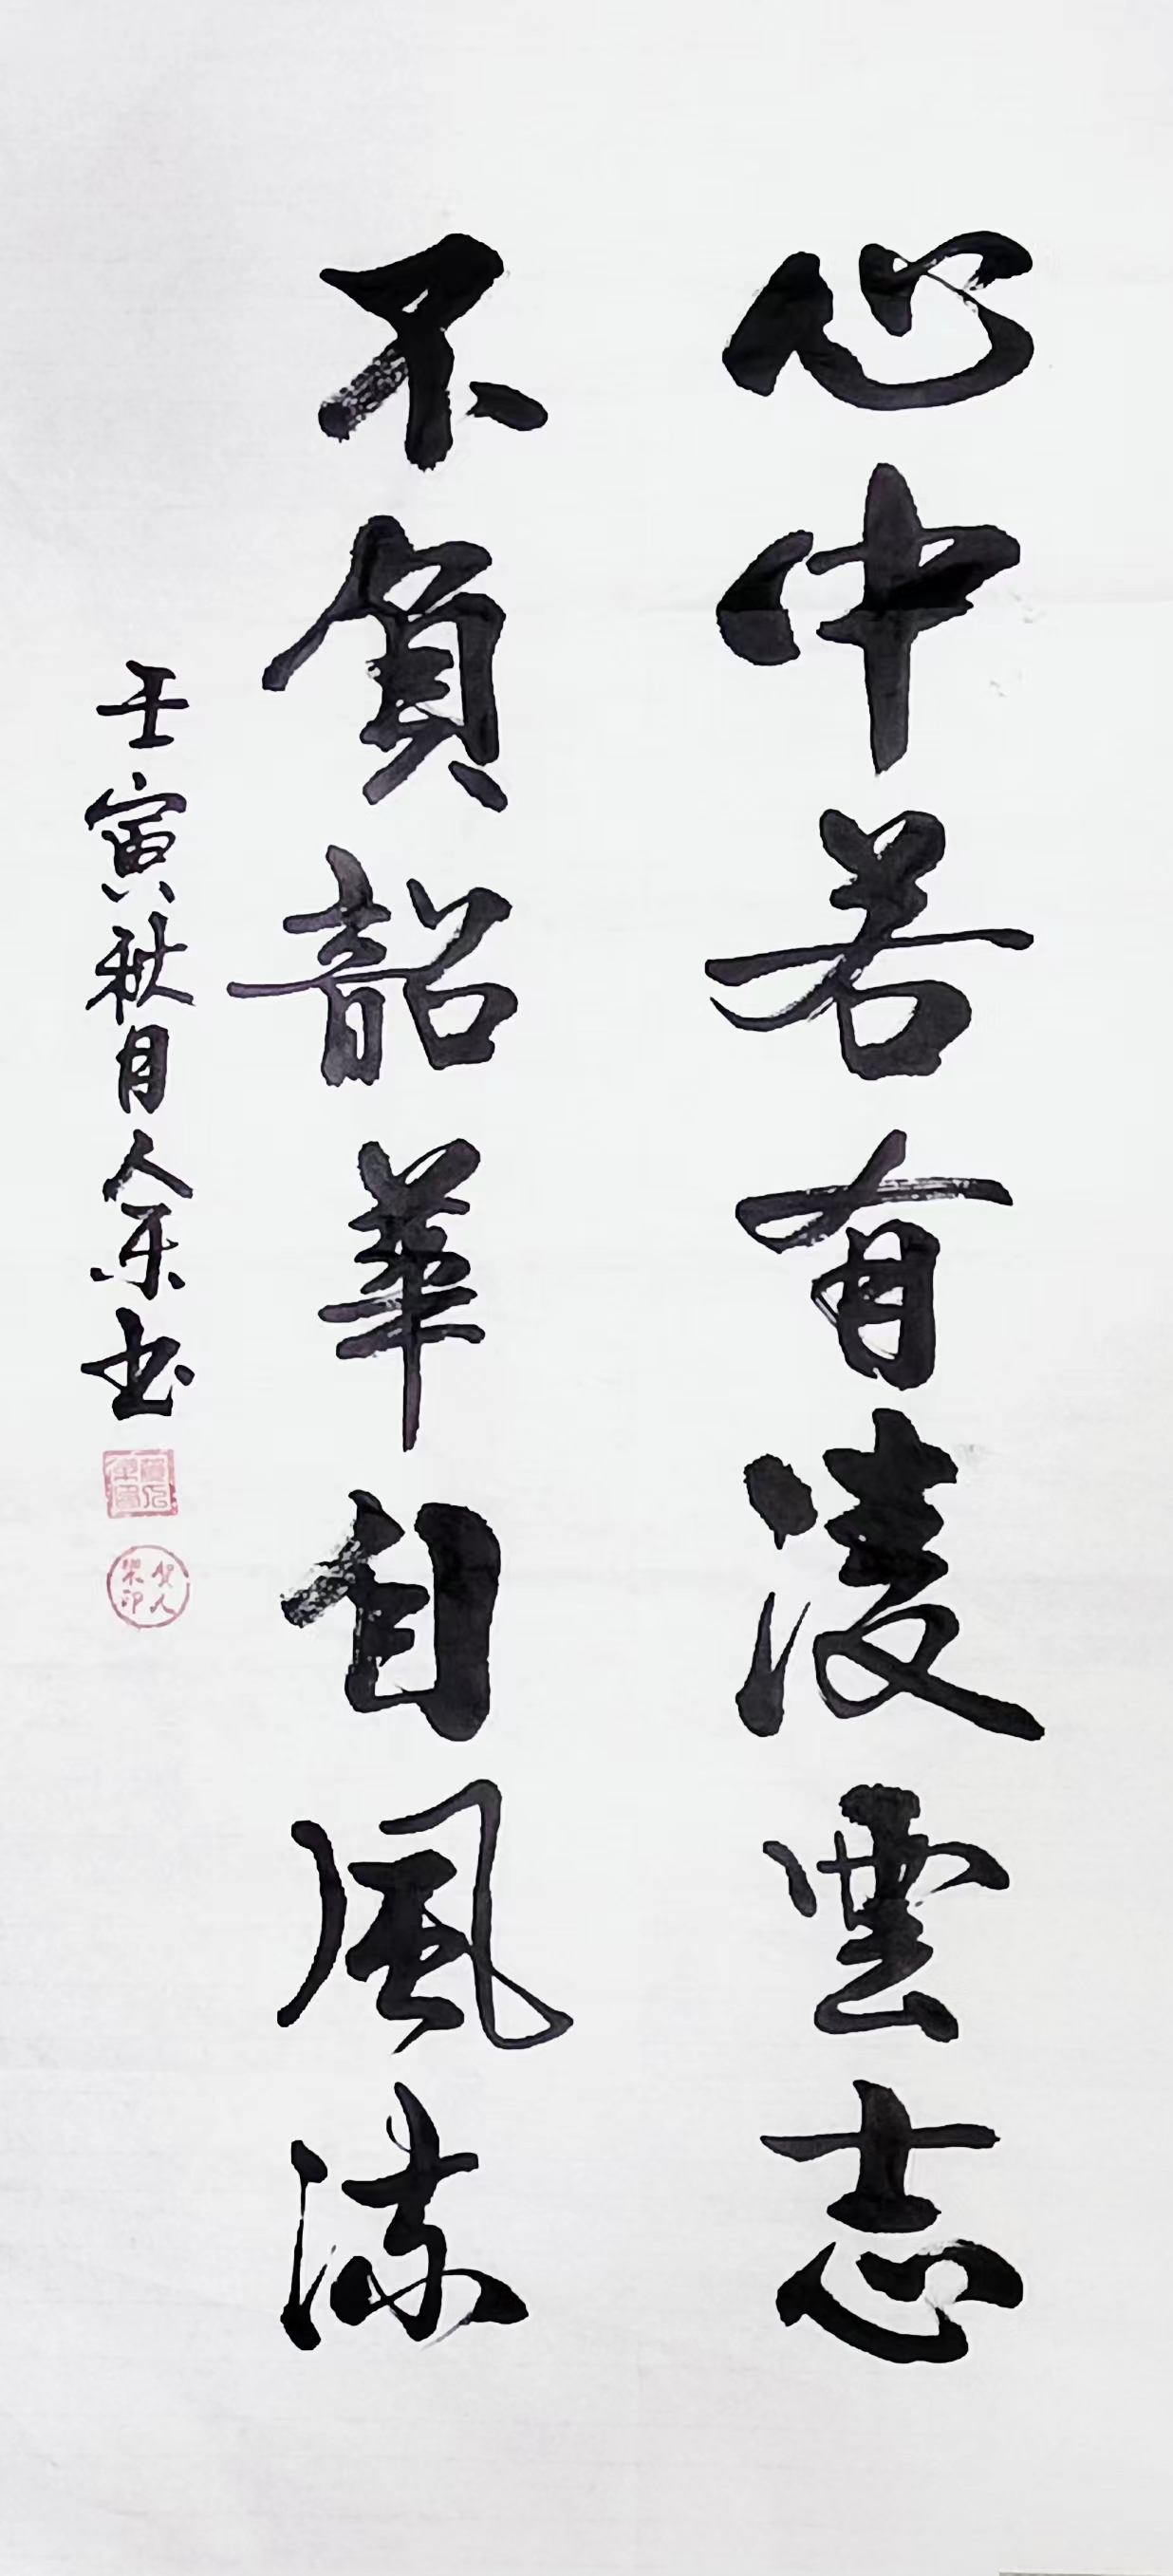 心中若有凌雲志
不負韶華自風流
壬寅秋月人乐书
賀人樂印